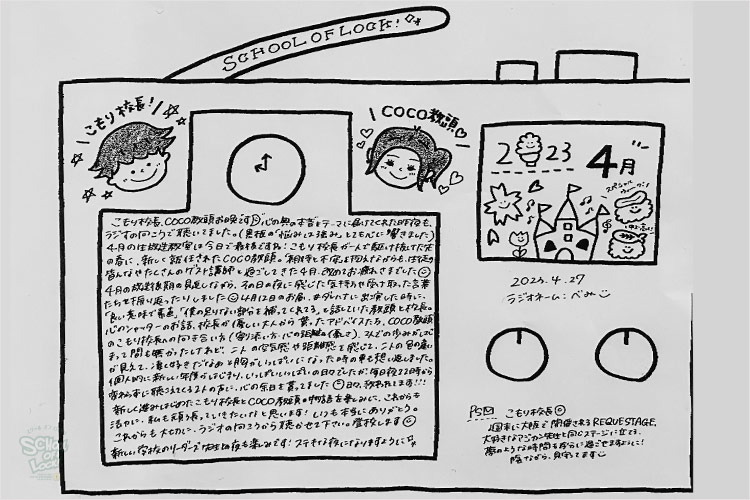 SCHOOL OF LOCK!
こもり校長!
COCO教頭
こもり校長、COCO教頭お晩です 心の奥の本音をテーマに届けてくれた昨夜も、
ラジオの向こうで聴いてました。(黒板の"悩みは強み"とても心に響きました)
4月の生放送教室は今日で最終ですね!こもり校長が一人で駆け抜けた冬
の春に、新しく就任されたCOCO教頭。期待と不安を抱えながらも、生徒の
皆んなやたくさんのゲスト講師と過ごしてきた4月、改めてお疲れさまでした
4月の放送後期の見返しながら、その日の夜に感じた気持ちや受け取った言葉
たちを振り返ったりしました 4月12日のお届、#ダレハナに出演した時に、
"良い意味で普通"、"僕の足りない部分を補ってくれてる"と話していた教頭と校長。
心のシャッターのお話、校長が
アドバイスたち、COCO教頭
のこもり校長への向き合い方
まって間も無かったけれど、二人の空気感や距離感を感じて、二人の
が見えて、凄く好きだなぁと胸がいっぱいになった時の事も思い返しました。
個人的に新しい年度がはじまり、いっぱいいっぱいの日々でしたが毎日夜22時から
変わらずに聴こえてくる2人の声に、心の余白を貰ってました 日々、救われてます!!!
新しく歩みはじめたこもり校長とCOCO教頭の物語を楽しみに、これからも
活力に、私も頑張っていきたいと思います!いつも本当にありがとう。
これからも大切に、ラジオの向こうから聴かせて下さい。登校します
新しい学校のリーダーズ先生との夜も楽しみです!ステキな夜になりますように
2023 4月
スペシャル
ウィーク!
2023.4.27
ラジオネーム:べみ
PS こもり校長
1週末に大阪で開催されるREQUESTAGE、
大好きなアジカン先生と同じステージに立てる、
夢のような時間を存分に過ごせますように!
陰ながら、見守ってます
SCHOOL
OF
LOCK!